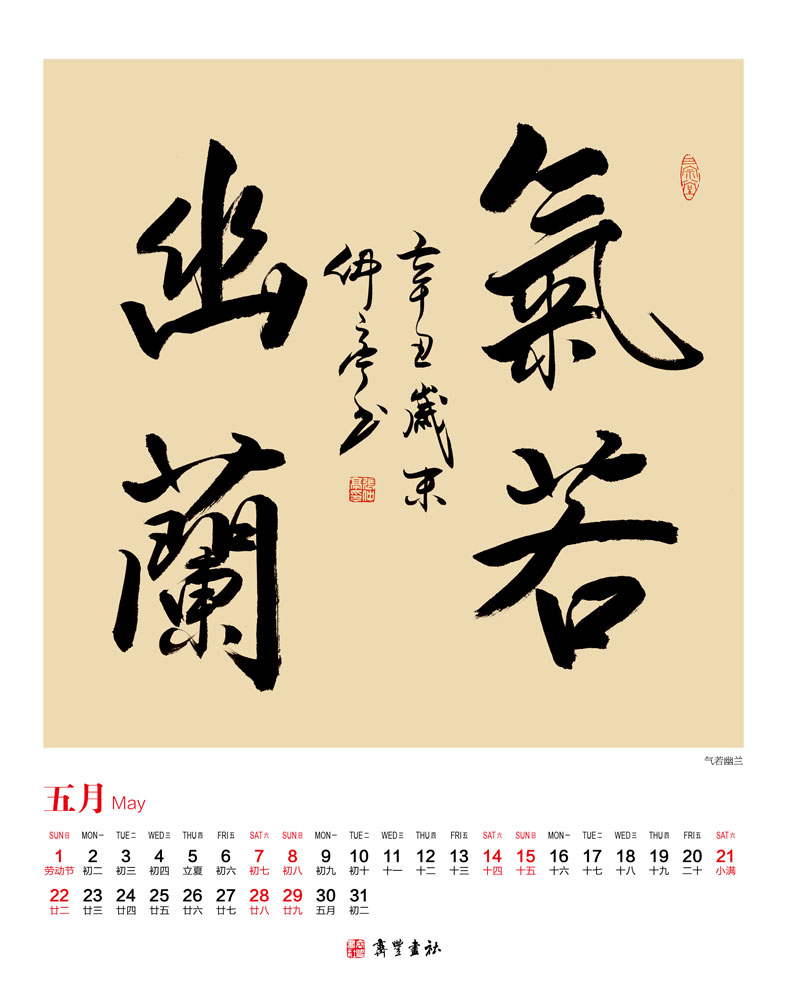 氣若
幽蘭
辛丑歲末
仲亭书
气若幽兰
五月 May
SUN日 MON一 TUE二 WED三 THU四 FRI五 SAT六 SUN日 MON一 TUE二 WED三 THU四 FRI五 SAT六 SUN日 MON一 TUE二 WED三 THU四 FRI五 SAT六
1 2 3 4 5 6 7 8 9 10 11 12 13 14 15 16 17 18 19 20 21
劳动节 初二 初三 初四 立夏 初六 初七 初八 初九 初十 十一 十二 十三 十四 十五 十六 十七 十八 十九 二十 小满
22 23 24 25 26 27 28 29 30 31
廿二 廿三 廿四 廿五 廿六 廿七 廿八 廿九 五月 初二
齊魯畫社